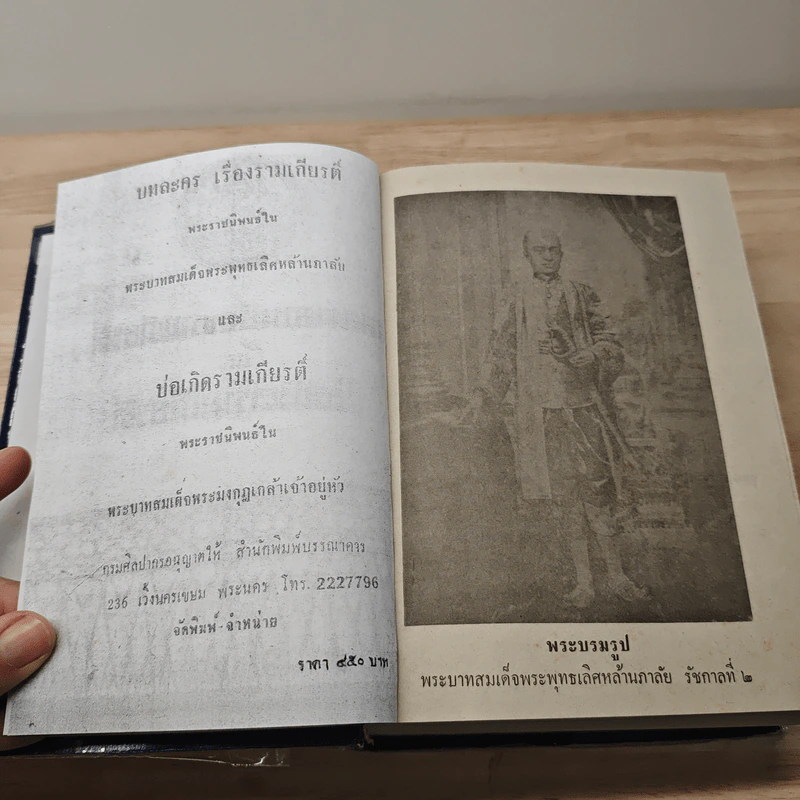 บทละคร เรื่องรามเกียรติ์
พระราชนิพนธ์ใน
พระบาทสมเด็จพระพุทธเลิศหล้านภาลัย
และ
บ่อเกิดรามเกียรติ์
พระราชนิพนธ์ใน
พระบาทสมเด็จพระมงกุฎเกล้าเจ้าอยู่หัว
กรมศิลปากรอนุญาตให้ สำนักพิมพ์บรรณาคาร
236 เวิ้งนครเขษม พระนคร โทร. 2227796
จัดพิมพ์-จำหน่าย
ราคา ๔๕๐ บาท
พระบรมรูป
พระบาทสมเด็จพระพุทธเลิศหล้านภาลัย รัชกาลที่ ๒